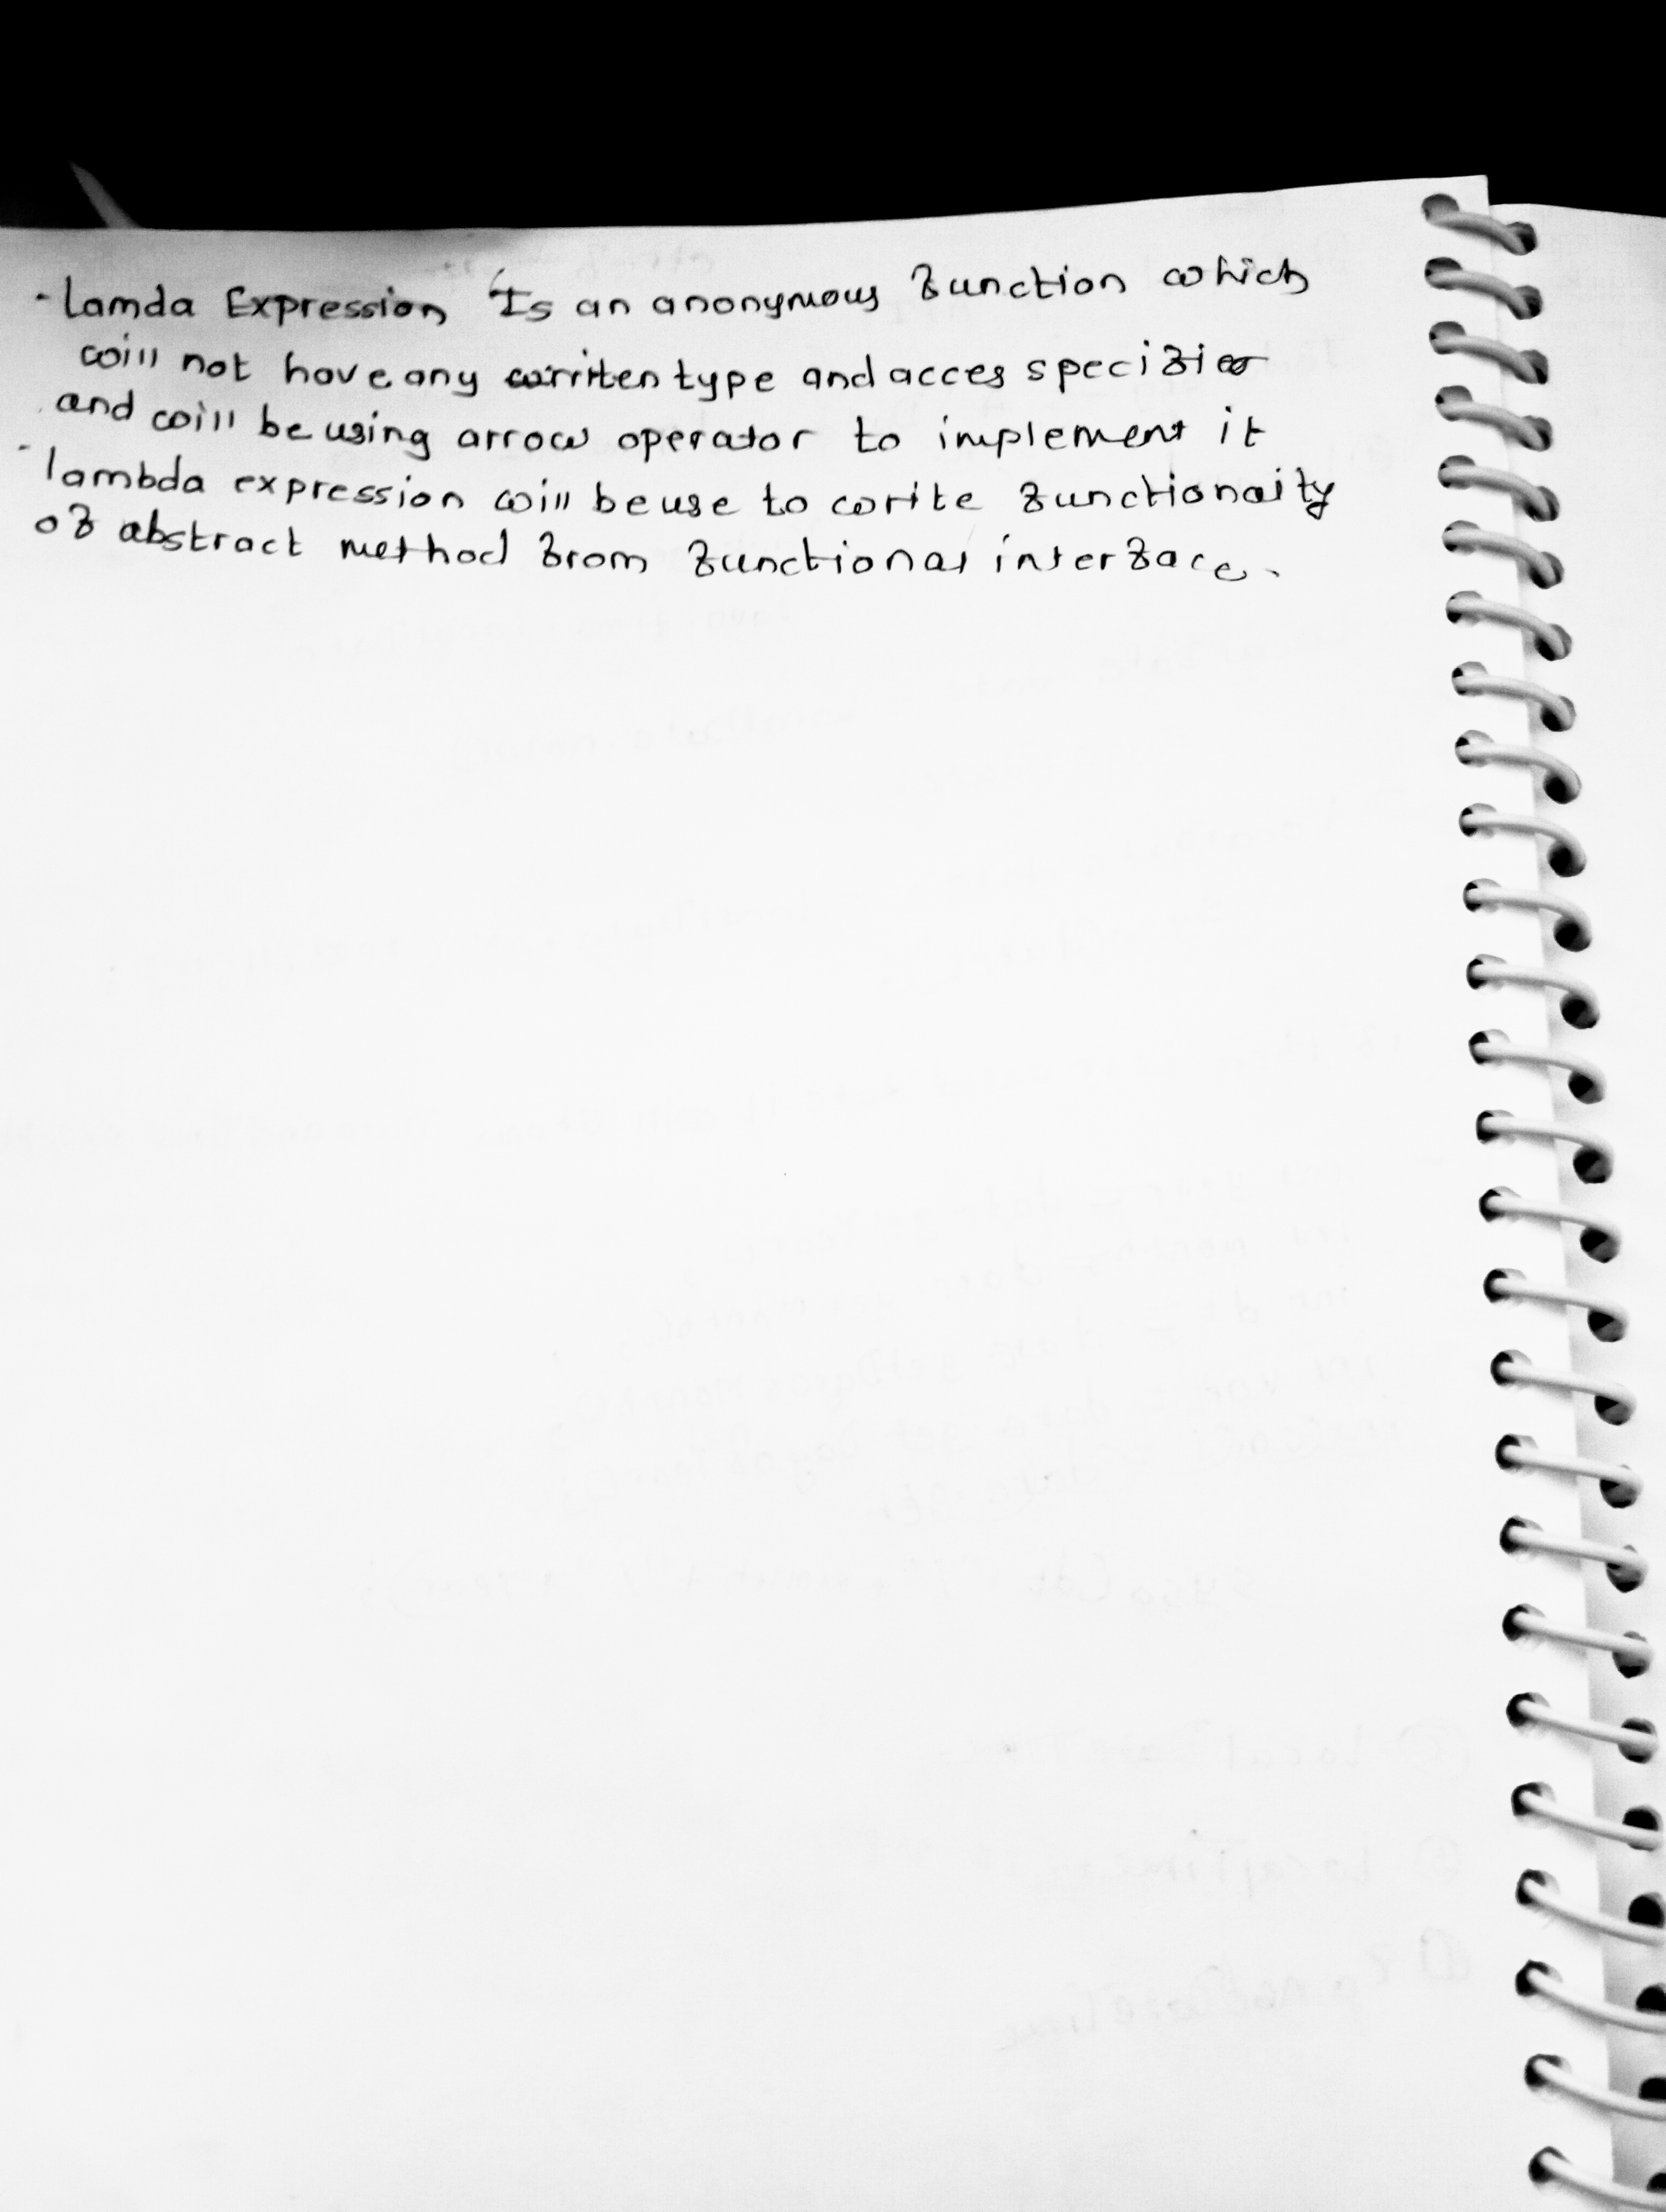 - Lamda Expression Is an anonymous function which
will not have any written type and acces specifier
and will be using arrow operator to implement it
- lambda expression will be use to write functionaity
of abstract method from functional interface.